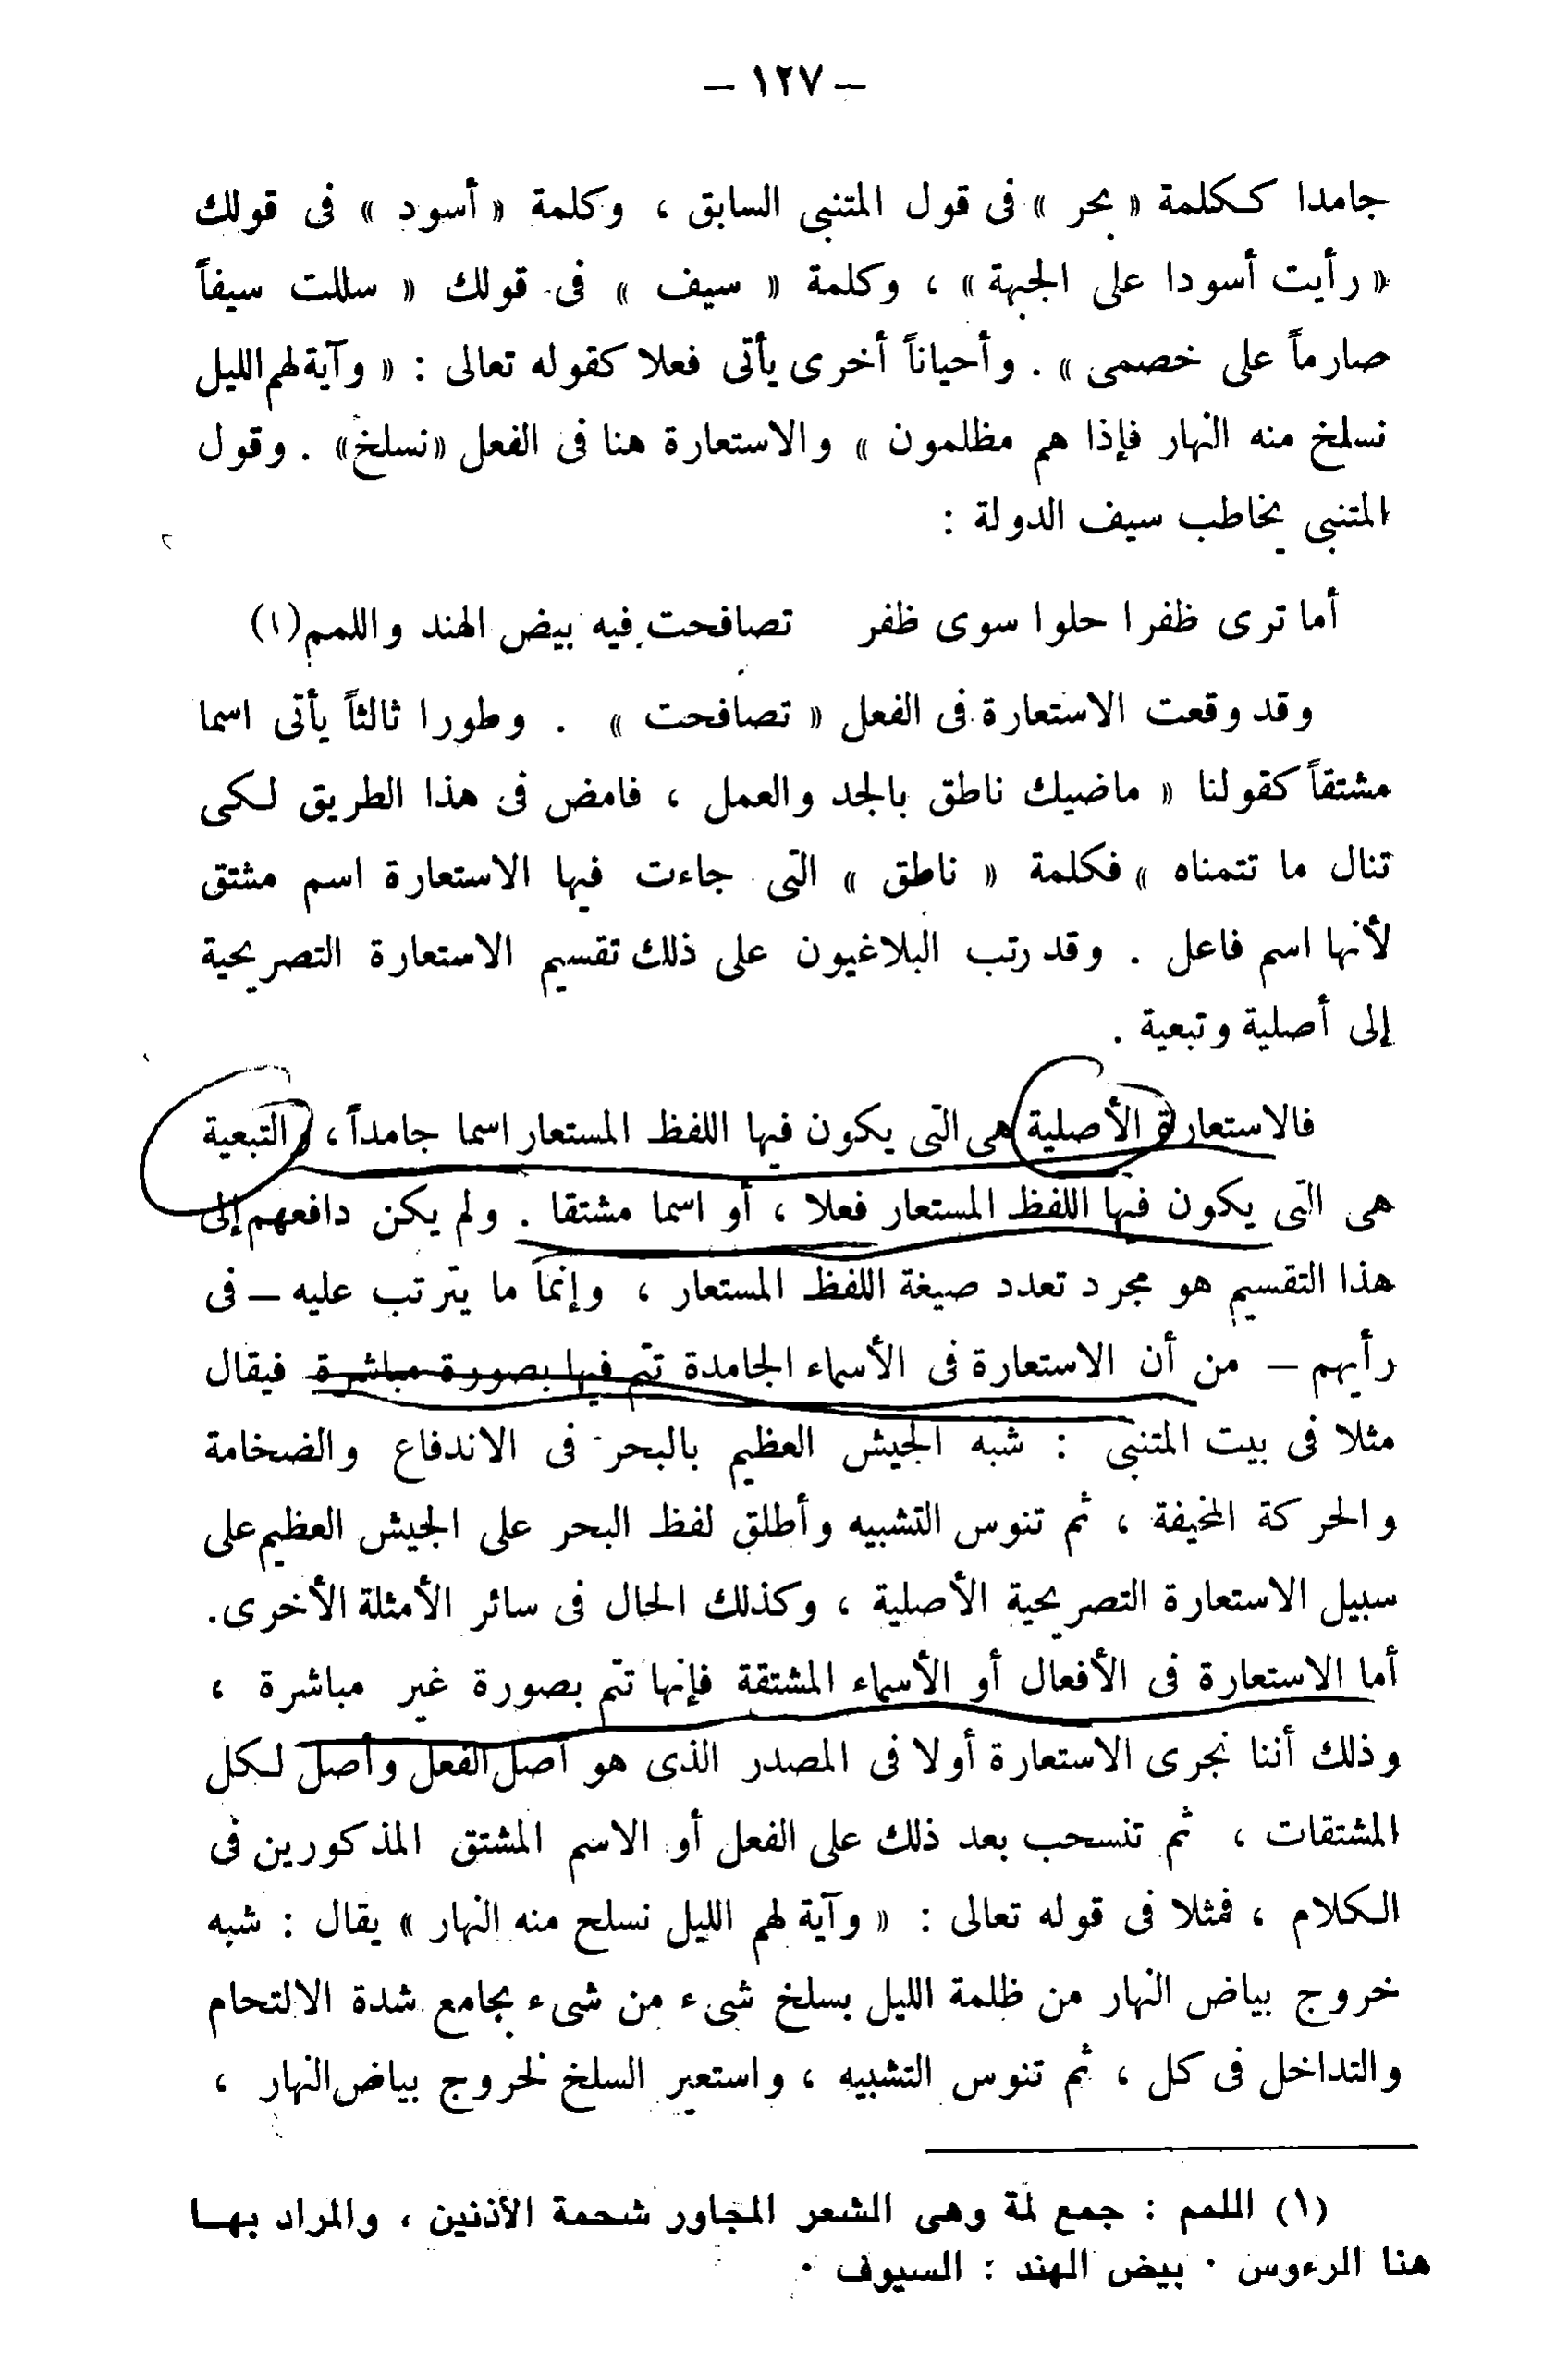 — ١٢٧ —
جامدا ككلمة « بحر » فى قول المتنبى السابق ، وكلمة « أسود » فى قولك
« رأيت أسودا على الجبهة » ، وكلمة « سيف » فى قولك « سللت سيفاً
صارماً على خصمى » . وأحياناً أخرى يأتى فعلا كقوله تعالى : « وآية لهم الليل
نسلخ منه النهار فإذا هم مظلمون » والاستعارة هنا فى الفعل «نسلخ» . وقول
المتنبى يخاطب سيف الدولة :
أما ترى ظفرا حلوا سوى ظفر تصافحت فيه بيض الهند واللمم(١)
وقد وقعت الاستعارة فى الفعل « تصافحت » . وطورا ثالثاً يأتى اسما
مشتقاً كقولنا « ماضيك ناطق بالجد والعمل ، فامض فى هذا الطريق لكى
تنال ما تتمناه » فكلمة « ناطق » التى جاءت فيها الاستعارة اسم مشتق
لأنها اسم فاعل . وقد رتب البلاغيون على ذلك تقسيم الاستعارة التصريحية
إلى أصلية وتبعية .
فالاستعارة الأصلية هى التى يكون فيها اللفظ المستعار اسما جامداً ، والتبعية
هى التى يكون فيها اللفظ المستعار فعلا ، أو اسما مشتقا . ولم يكن دافعهم إلى
هذا التقسيم هو مجرد تعدد صيغة اللفظ المستعار ، وإنما ما يترتب عليه – فى
رأيهم – من أن الاستعارة فى الأسماء الجامدة تتم فيها بصورة مباشرة فيقال
مثلا فى بيت المتنبى : شبه الجيش العظيم بالبحر فى الاندفاع والضخامة
والحركة المخيفة ، ثم تنوسى التشبيه وأطلق لفظ البحر على الجيش العظيم على
سبيل الاستعارة التصريحية الأصلية ، وكذلك الحال فى سائر الأمثلة الأخرى.
أما الاستعارة فى الأفعال أو الأسماء المشتقة فإنها تتم بصورة غير مباشرة ،
وذلك أننا نجرى الاستعارة أولا فى المصدر الذى هو أصل الفعل وأصل لكل
المشتقات ، ثم تنسحب بعد ذلك على الفعل أو الاسم المشتق المذكورين فى
الكلام ، فمثلا فى قوله تعالى : « وآية لهم الليل نسلح منه النهار » يقال : شبه
خروج بياض النهار من ظلمة الليل بسلخ شىء من شىء بجامع شدة الالتحام
والتداخل فى كل ، ثم تنوس التشبيه ، واستعير السلخ لخروج بياض النهار ،
(١) اللمم : جمع لمة وهى الشعر المجاور شحمة الأذنين ، والمراد بها
هنا الرءوس · بيض الهند : السيوف ·